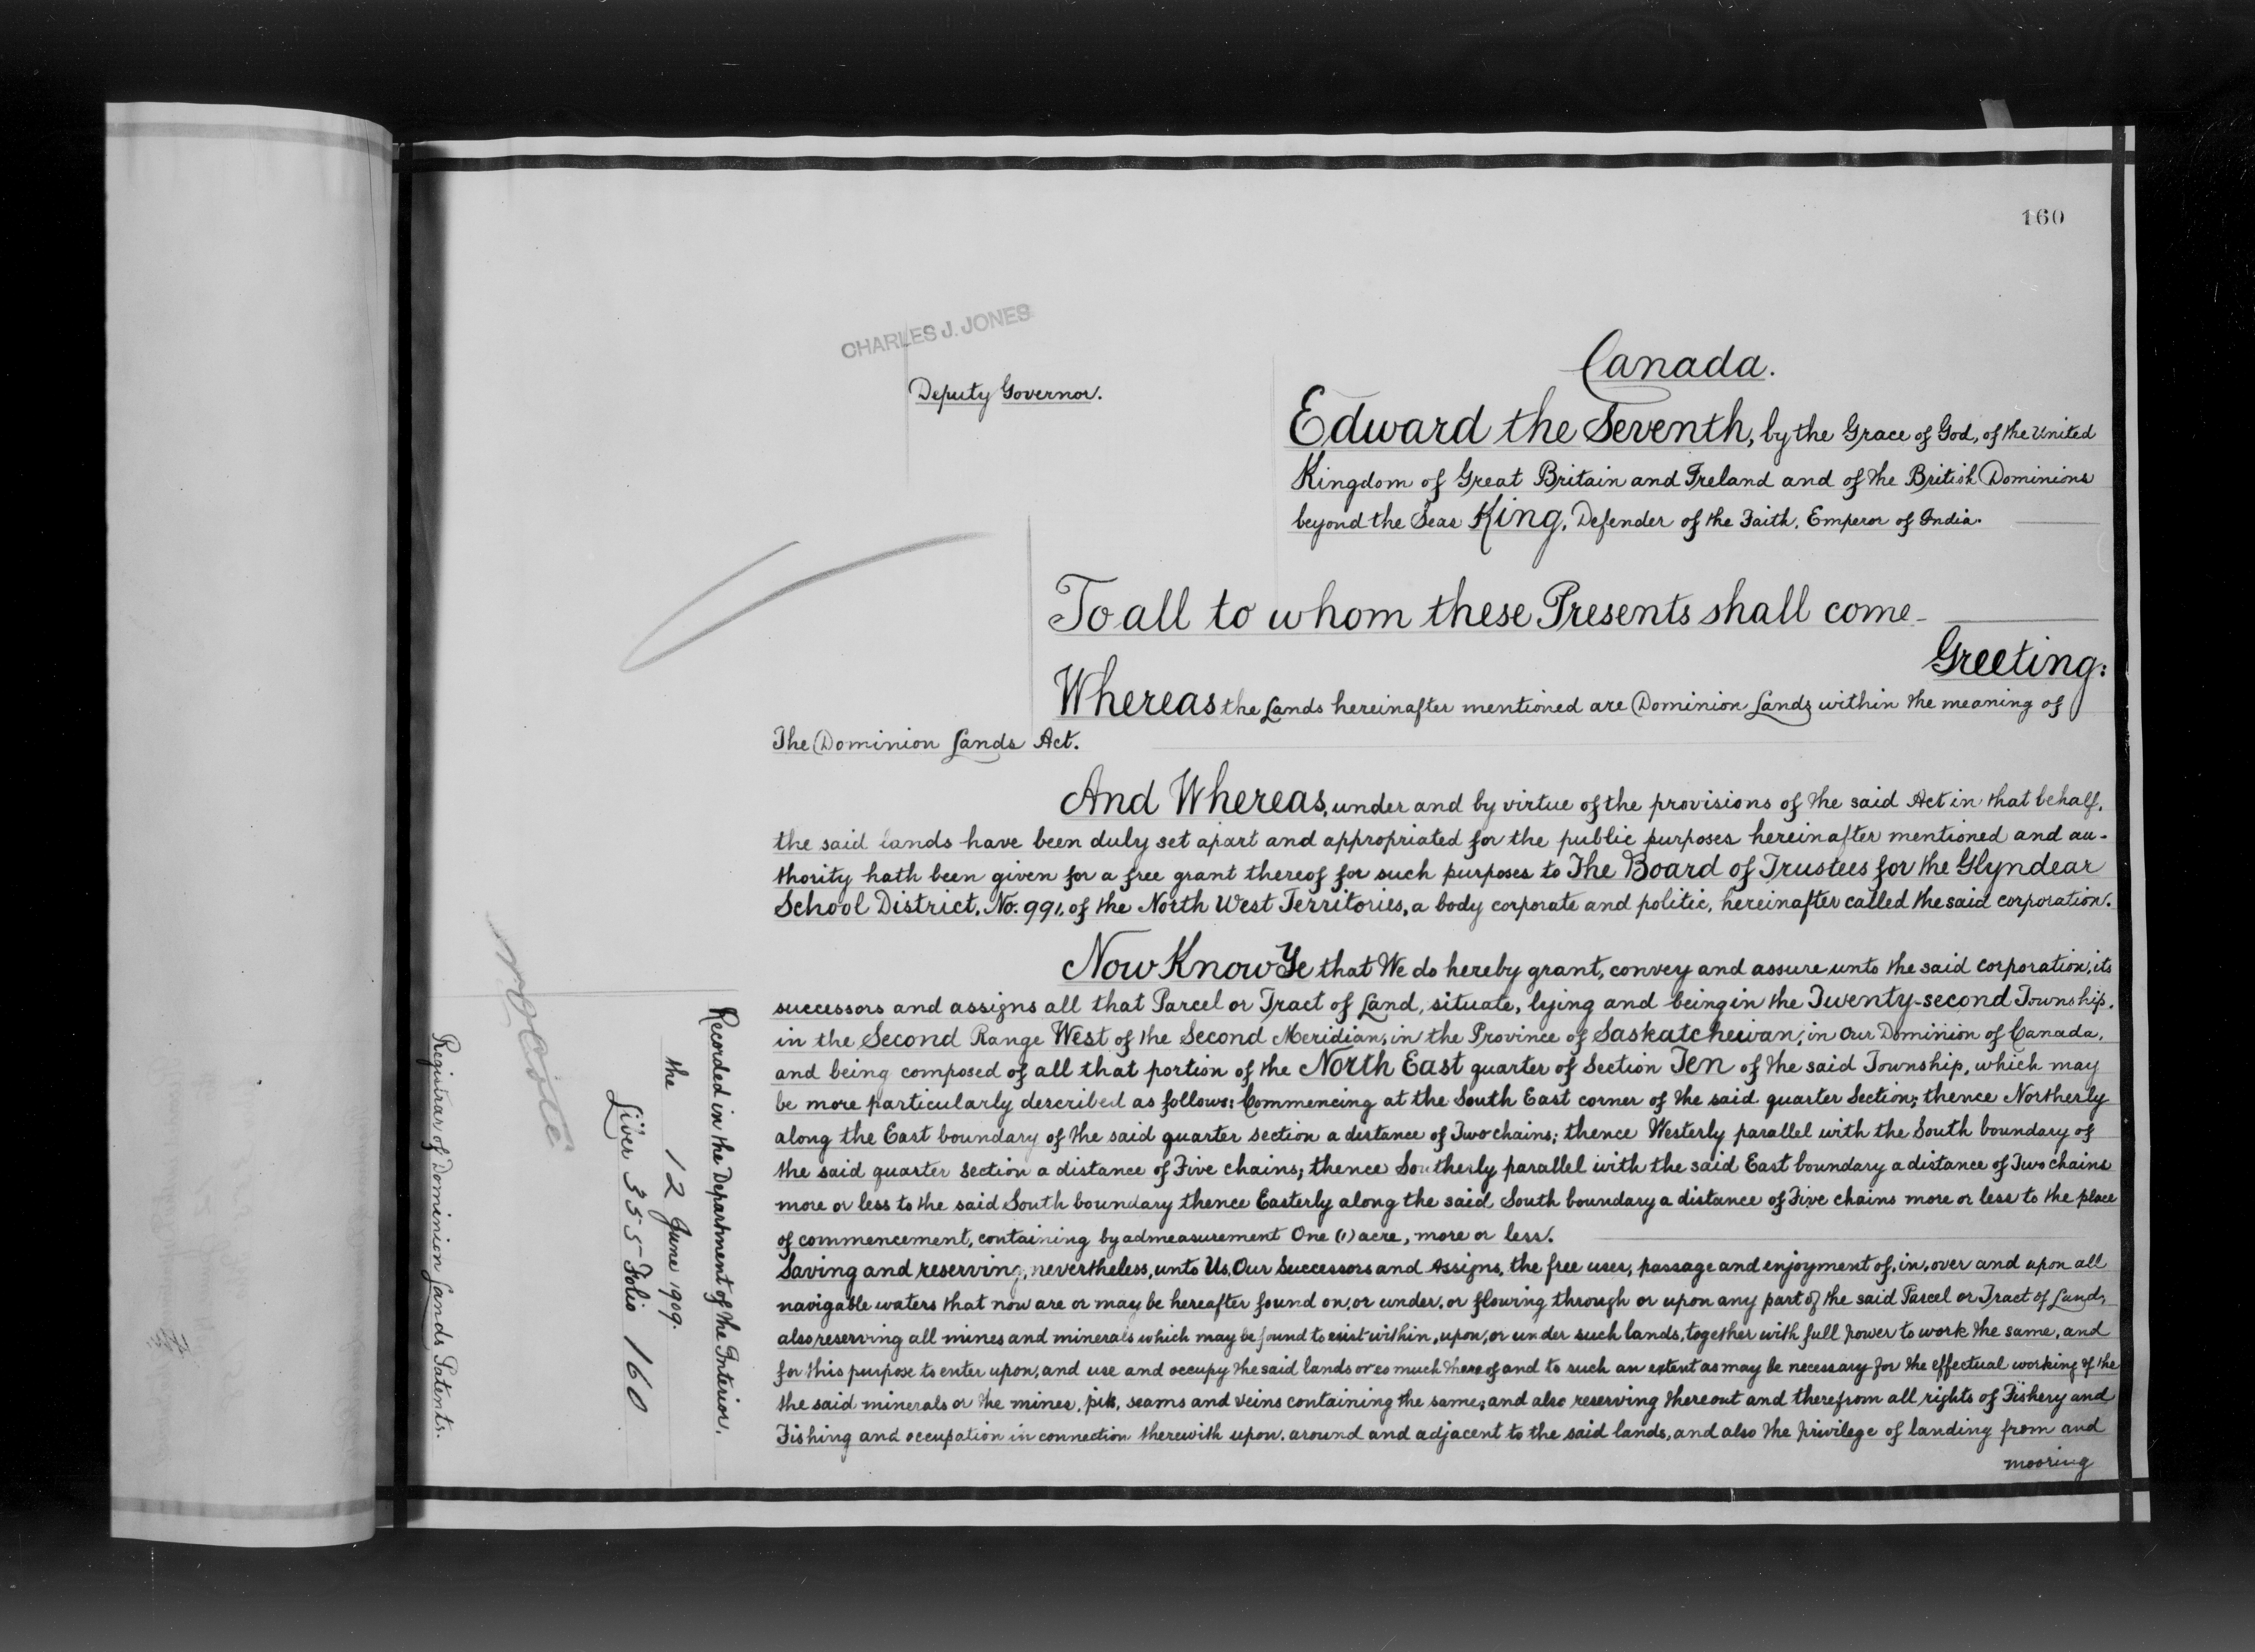 160
CHARLES J. JONES
Deputy Governor.
Canada.
Edward the Seventh, by the Grace of God, of the United
Kingdom of Great Britain and Ireland and of the British Dominions
beyond the Seas King, Defender of the Faith, Emperor of India.
To all to whom these Presents shall come
Greeting:
Whereas the Lands hereinafter mentioned are Dominion Lands within the meaning of
The Dominion Lands Act.
And Whereas, under and by virtue of the provisions of the said Act in that behalf,
the said lands have been duly set apart and appropriated for the public purposes hereinafter mentioned and au-
thority hath been given for a free grant thereof for such purposes to The Board of Trustees for the Glyndear
School District, No. 991, of the North West Territories, a body corporate and politic, hereinafter called the said corporation.
Now Know Ye that We do hereby grant, convey and assure unto the said corporation, its
successors and assigns all that Parcel or Tract of Land, situate, lying and being in the Twenty-second Township,
in the Second Range West of the Second Meridian, in the Province of Saskatchewan, in Our Dominion of Canada,
and being composed of all that portion of the North East quarter of Section Ten of the said Township, which may
be more particularly described as follows: Commencing at the South East corner of the said quarter Section; thence Northerly
along the East boundary of the said quarter section a distance of Two chains; thence Westerly parallel with the South boundary of
the said quarter section a distance of Five chains; thence Southerly parallel with the said East boundary a distance of Two chains
more or less to the said South boundary thence Easterly along the said South boundary a distance of Five chains more or less to the place
of commencement, containing by admeasurement One (1) acre, more or less.
Saving and reserving, nevertheless, unto Us, Our Successors and Assigns, the free user, passage and enjoyment of, in, over and upon all
navigable waters that now are or may be hereafter found on, or under, or flowing through or upon any part of the said Parcel or Tract of Land,
also reserving all mines and minerals which may be found to exist within, upon, or under such lands, together with full power to work the same, and
for this purpose to enter upon, and use and occupy the said lands or so much thereof and to such an extent as may be necessary for the effectual working of the
the said minerals or the mines, pits, seams and veins containing the same; and also reserving thereout and therefrom all rights of Fishery and
Fishing and occupation in connection therewith upon, around and adjacent to the said lands, and also the privilege of landing from and
mooring
Recorded in the Department of the Interior,
the 12 June 1909.
Liber 355 Folio 160
Registrar of Dominion Lands Patents.